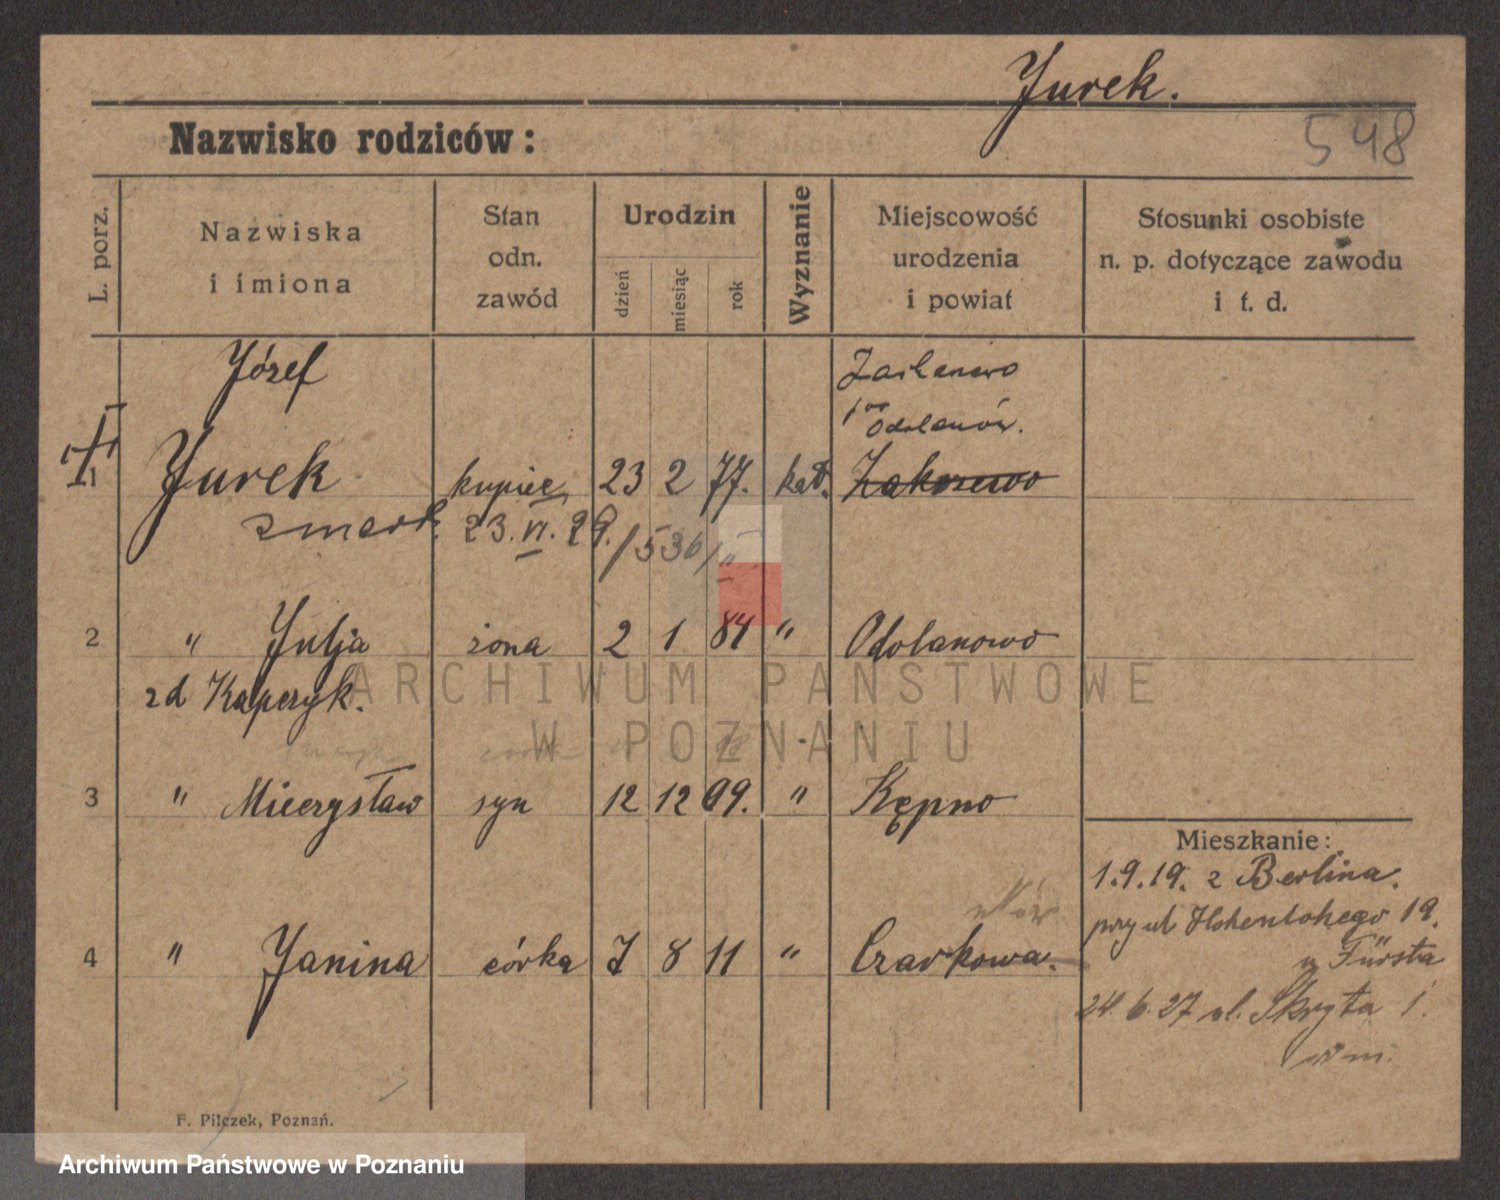 Jurek.
Nazwisko rodziców:
548
L. porz.
Nazwiska
i imiona
Stan
odn.
zawód
Urodzin
dzień
miesiąc
rok
Wyznanie
Miejscowość
urodzenia
i powiat
Stosunki osobiste
n. p. dotyczące zawodu
i t. d.
Józef
Odolanów.
1 Jurek kupiec 23 2 77. kat. Zakrzewo
zmarł. 23.VI.29. /536/II
2 " Julja żona 2 1 84 " Odolanowo
zd Kaperzyk.
3 " Mieczysław syn 12 12 09. " Kępno
Mieszkanie:
1.9.19. z Berlina.
przy ul Hohenlohego 19.
u Fürsta
4 " Janina córka 7 8 11 " Czarkowa.
24.6.27 ul. Skryta 1.
F. Pilczek, Poznań.
ARCHIWUM PAŃSTWOWE
W POZNANIU
Archiwum Państwowe w Poznaniu